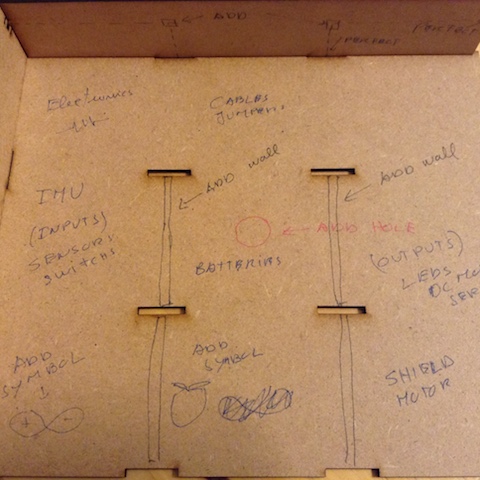 ← ADD
PERFECT
PERFECT
Electronics
CABLES
JUMPERS
ADD wall
ADD wall
IMU
(INPUTS)
SENSORS
switchs
← ADD HOLE
BATTERIES
(OUTPUTS)
LEDS
DC MO
SER
ADD
SYMBOL
1
+ -
ADD
SYMBOL
SHIELD
MOTOR